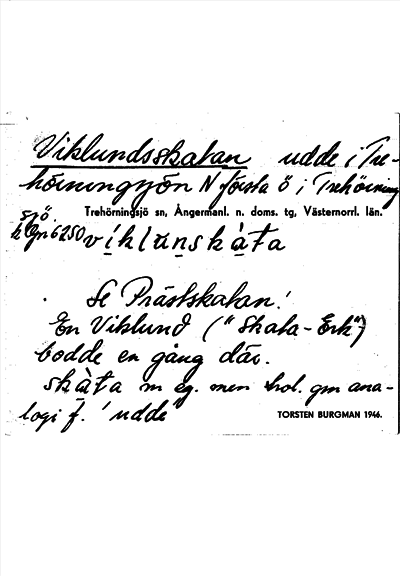 Viklundsskatan udde i Tre-
hörningsjön N första ö i Trehörning
sjö. Trehörningsjö sn, Ångermanl. n. doms. tg, Västernorrl. län.
6250 vìklunskàta
Se Prästskatan!
En Viklund ("Skata-Erk")
bodde en gång där.
skàta m eg. men trol. gm ana-
logi f. 'udde'
TORSTEN BURGMAN 1946.